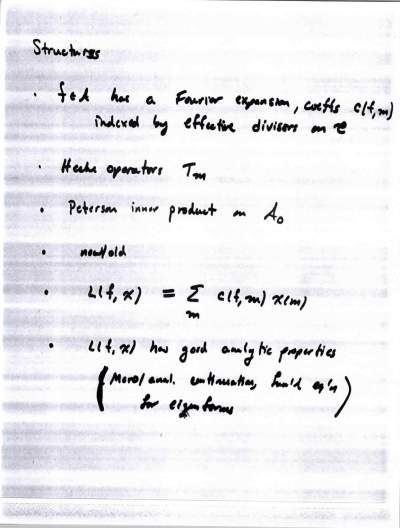 Structures
· f ∈ A has a Fourier expansion, coeffs c(f,m)
indexed by effective divisors on C
· Hecke operators T_m
· Peterson inner product on A_0
· new/old
· L(f, χ) = Σ_m c(f,m) χ(m)
· L(f, χ) has good analytic properties
(Moro/anal. continuation, func'l eq'n
for eigenforms)